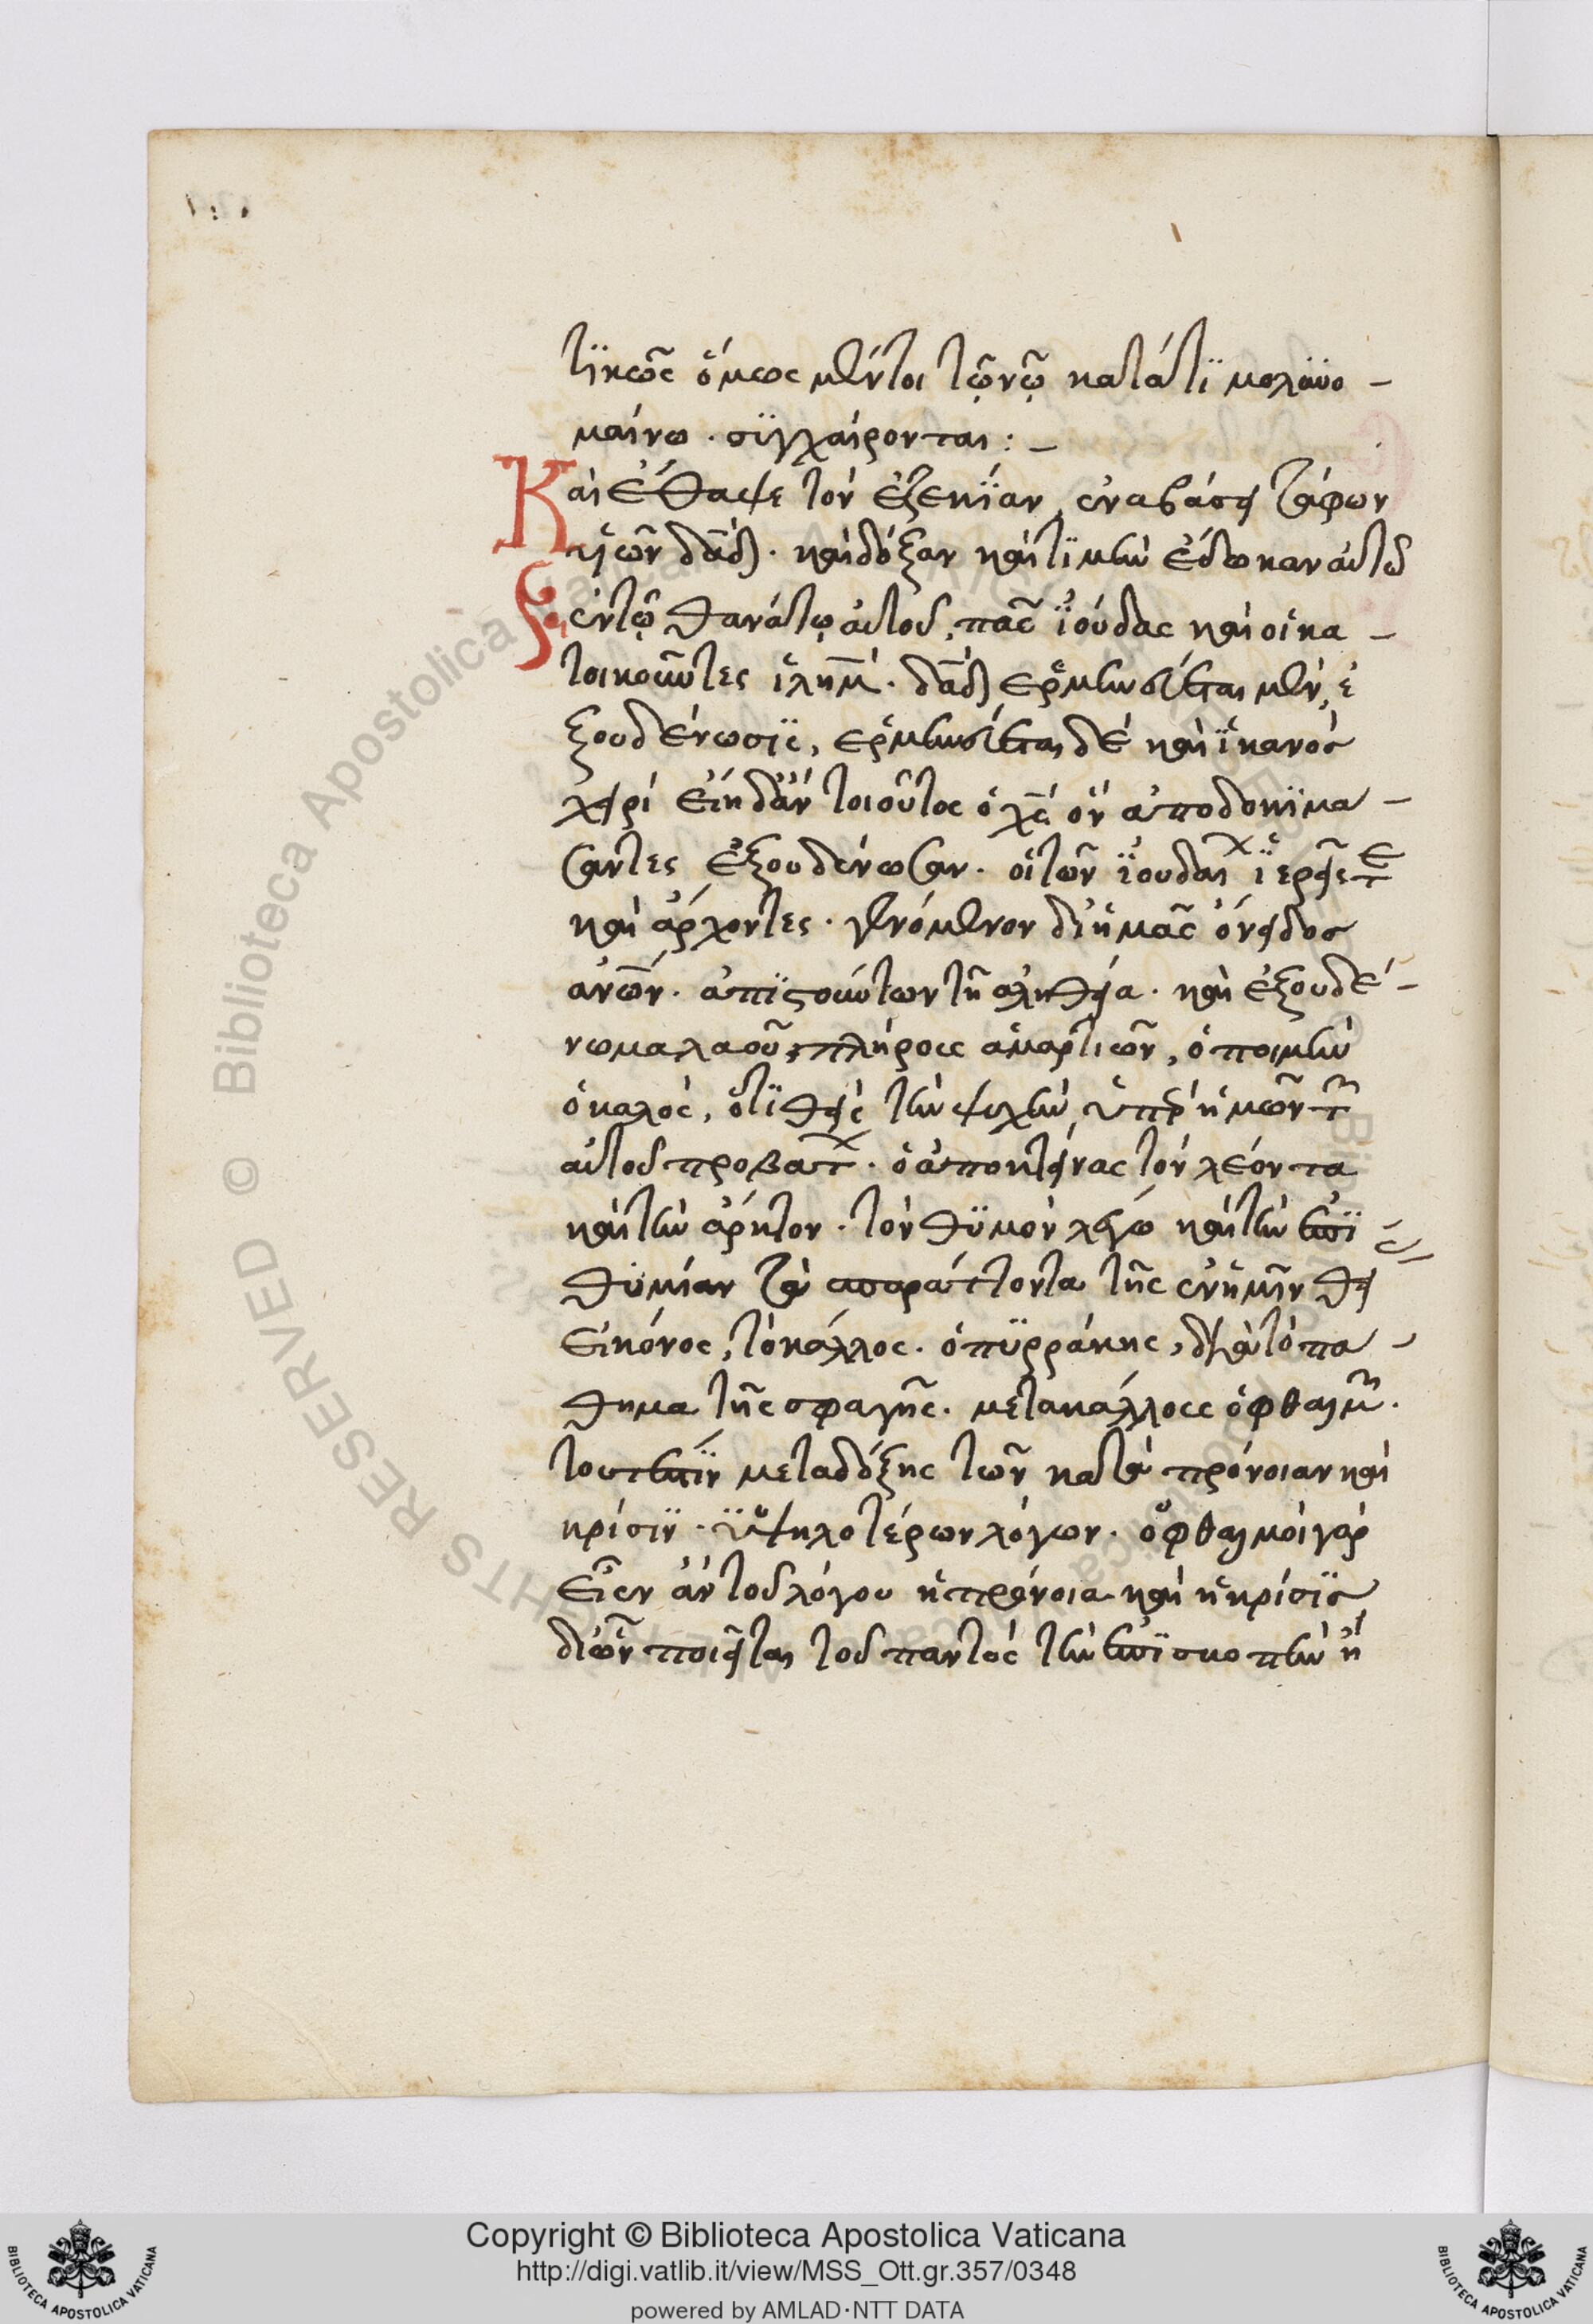 τικῶς ὅμως μέντοι τῷ νῷ κατά τι μολϋνο-
μαίνω. συγχαίρονται:-
Καὶ ἔθαψε τὸν ἐζεκίαν, ἐν ἀβάσει τάφων
υἱῶν δαδ. καὶ δόξαν καὶ τιμὴν ἔδωκαν αὐτῶ
ἐν τῷ θανάτῳ αὐτοῦ, πᾶς ἰούδας καὶ οἱ κα-
τοικοῦντες ἰλημ. δαδ ἑρμηνεύεται μὲν, ἐ
ξουδένωσις, ἑρμηνεύεται δὲ καὶ ἱκανὸς
χειρί εἴη δἂν τοιοῦτος ὁ χς ὃν ἀποδοκιμά-
σαντες ἐξουδένωσαν. οἱ τῶν ἰουδαί ἱερεῖς τε
καὶ ἄρχοντες. γενόμενον δι ἡμᾶς ὄνειδος
ανων. ἀπιστούντων τῆ ἀληθεία. καὶ ἐξουδέ-
νωμα λαοῦ πλήρους ἁμαρτιῶν, ὁ ποιμὴν
ὁ καλὸς, ὅτι θεὶς τὴν ψυχὴν ὑπὲρ ἡμῶν τ
αὐτοῦ προβάτ. ὁ ἀποκτείνας τὸν λέοντα
καὶ τὴν ἄρκτον. τὸν θυμὸν λέγω καὶ τὴν ἐπι
θυμίαν τὰ σπαράττοντα τῆς ἐν ἡμῖν θεί
εἰκόνος, τὸ κάλλος. ὁ πυρράκης, διὰ τὸ πά-
θημα τῆς σφαγῆς. μετα κάλλους ὀφθαλμ.
τουτέστιν μετα δόξης τῶν κατὰ πρόνοιαν καὶ
κρίσιν. ὑψηλοτέρων λόγων. ὀφθαλμοὶ γάρ
εἶεν ἂν τοῦ λόγου ἡ πρόνοια καὶ ἡ κρίσις
δι ὧν ποιεῖται τοῦ παντὸς τὴν ἐπισκοπὴν ἢ